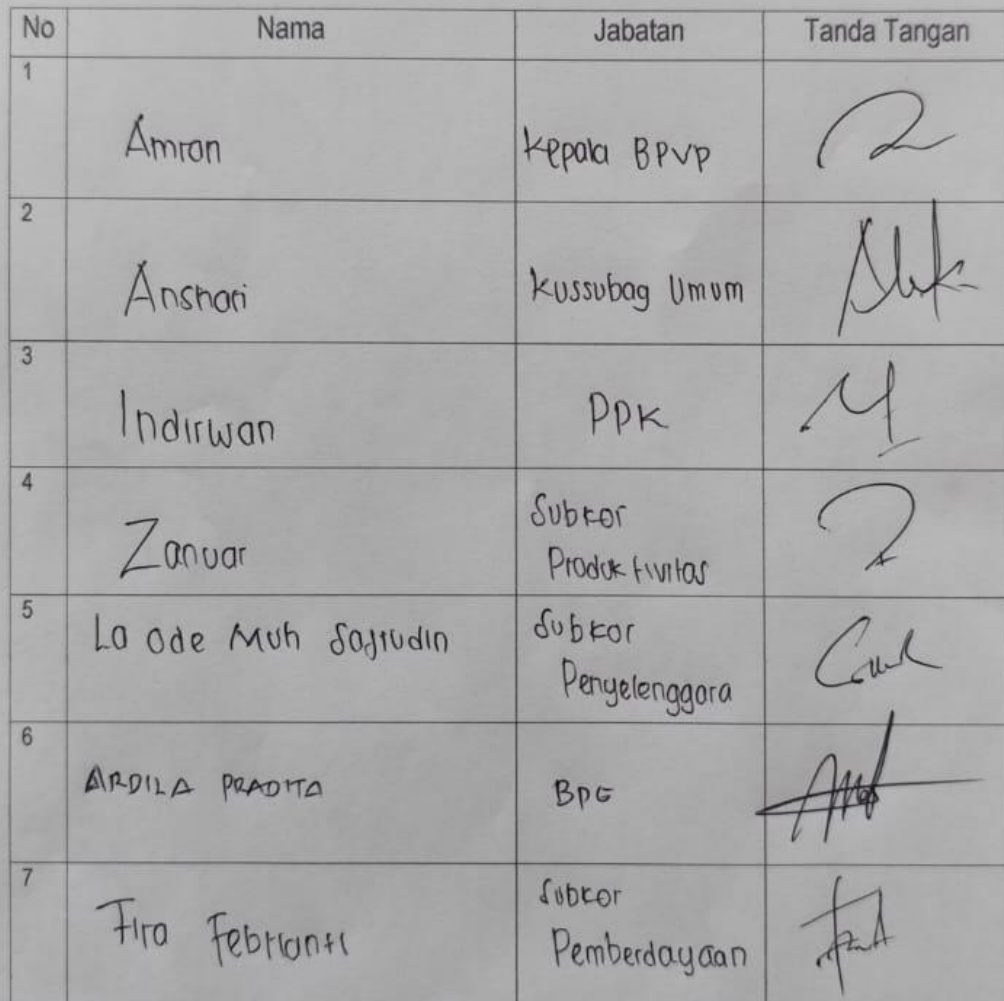 No Nama Jabatan Tanda Tangan
1
Amran Kepala BPVP
2
Anshari Kussubag Umum
3
Indirwan PPK
4
Zanuar Subkor
Produktivitas
5
La Ode Muh Safrudin Subkor
Penyelenggara
6
ARDILA PRADITA BPG
7
Fira Febrianti Subkor
Pemberdayaan